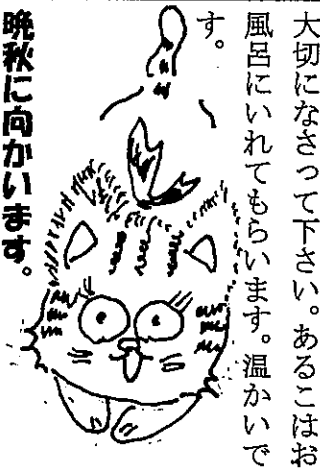 大切になさって下さい。あるこはお
風呂にいれてもらいます。温かいで
す。
晩秋に向かいます。